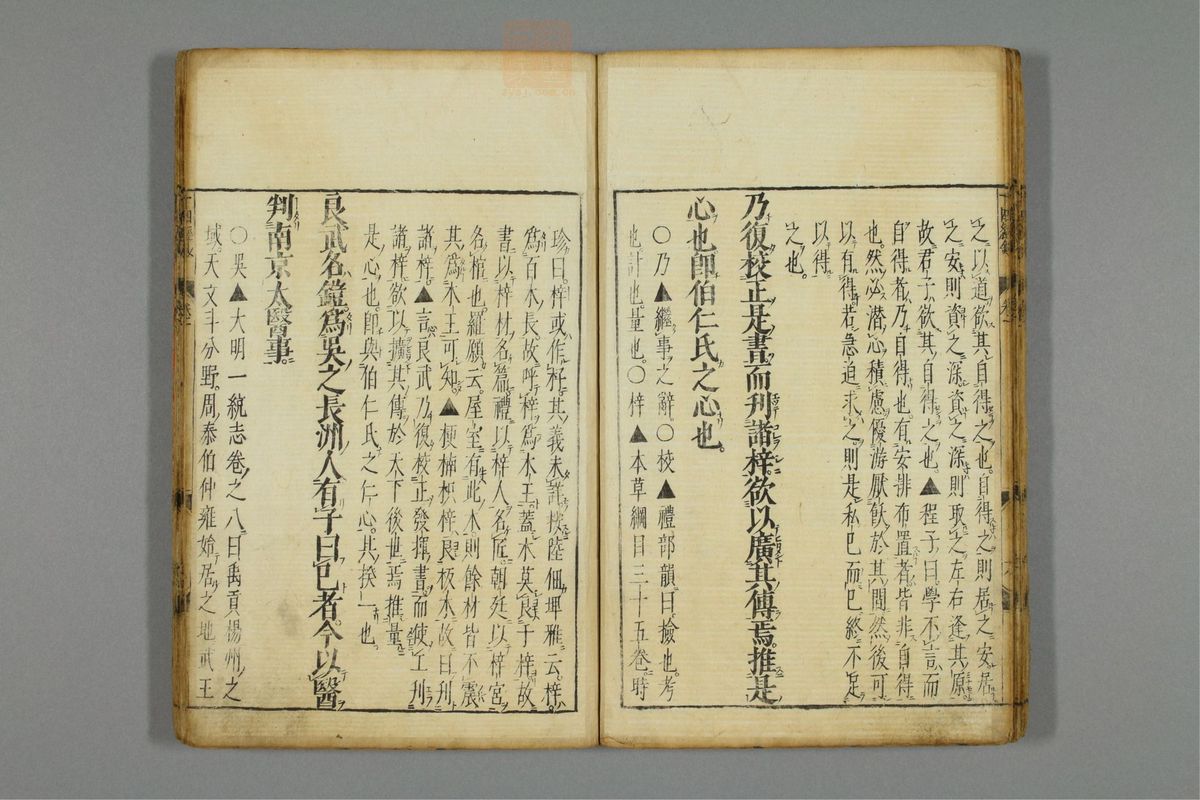 之以道欲其自得之也自得之則居之安居
之安則資之深資之深則取之左右逢其原
故君子欲其自得之也▲程子曰學不言而
自得者乃自得也有安排布置者皆非自得
也然必潛心積慮優游厭飫於其間然後可
以有得若急迫求之則是私已而已終不足
以得
之也
乃復校正是書而刋諸梓欲以廣其傳焉推是
心也卽伯仁氏之心也
〇乃▲繼事之辭〇校▲禮部韻曰撿也考
也計也量也〇梓▲本草綱目三十五卷時
珍曰梓或作杍其義未詳按陸佃埤雅云梓
爲百木長故呼梓爲木王蓋木莫良于梓故
書以梓材名篇禮以梓人名匠朝廷以梓宮
名棺也羅願云屋室有此木則餘材皆不震
其爲木王可知▲梗楠梓良板木故曰刋
諸梓▲言良武乃復校正發揮書而使工刋
諸梓欲以擴其傳於天下後世焉推量
是心也卽與伯仁氏之仁心其揆一也
良武名鎧爲吳之長洲人有子曰已者今以醫
判南京太醫事
〇吳▲大明一統志卷之八曰禹貢揚州之
域天文斗分野周泰伯仲雍始居之地武王